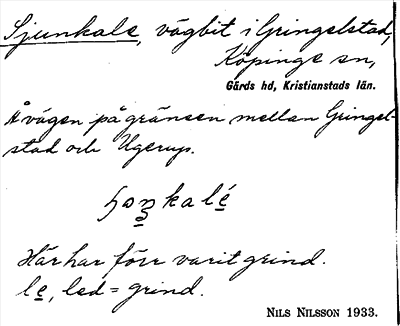 Sjunkale, vägbit i Gringelstad,
Köpinge sn,
Gärds hd, Kristianstads län.
Å vägen på gränsen mellan Gringel-
stad och Ugerup.
kalé
Här har förr varit grind.
le, led = grind.
NILS NILSSON 1933.